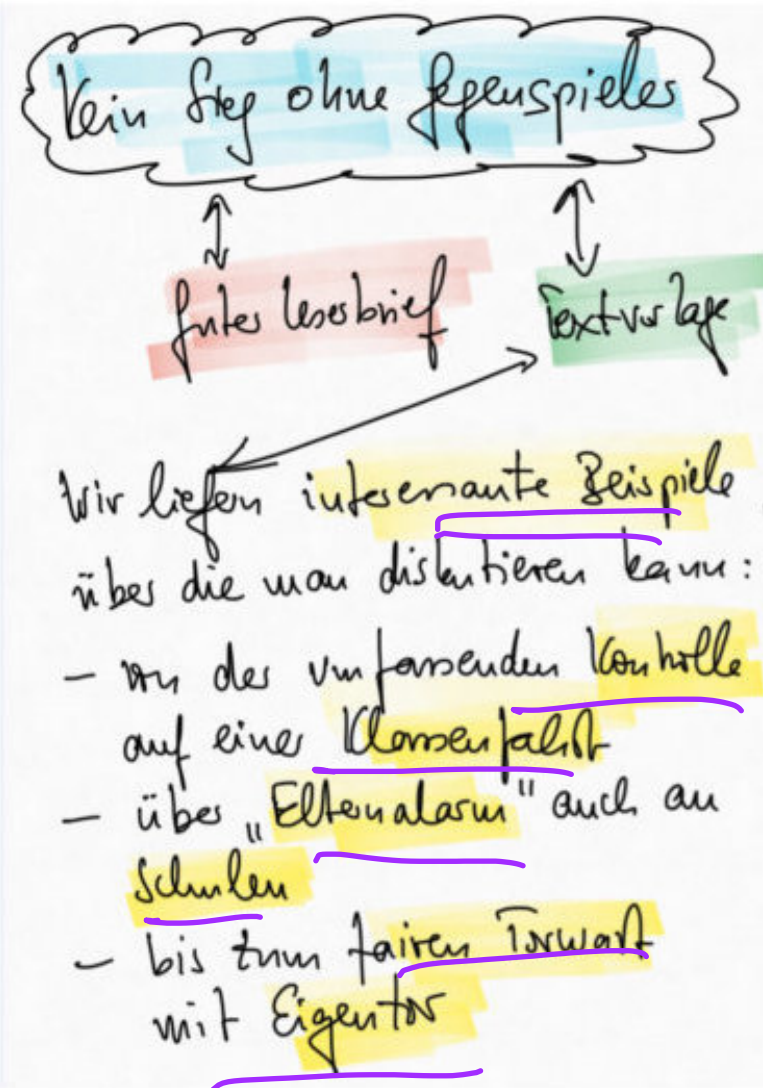 Kein Sieg ohne Gegenspieler
guter Leserbrief
Textvorlage
Wir liefern interessante Beispiele,
über die man diskutieren kann:
- von der umfassenden Kontrolle
auf einer Klassenfahrt
- über "Elternalarm" auch an
Schulen
- bis zum fairen Torwart
mit Eigentor